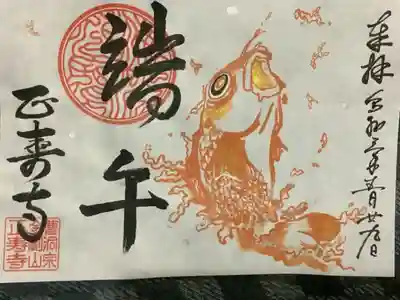 奉拝 令和三年五月廿九日
端午
正寿寺
曹洞宗
正寿寺